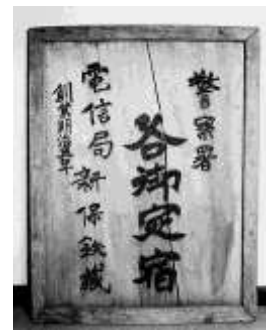 警察署
各御定宿
電信局 新保鉄蔵
創業明治